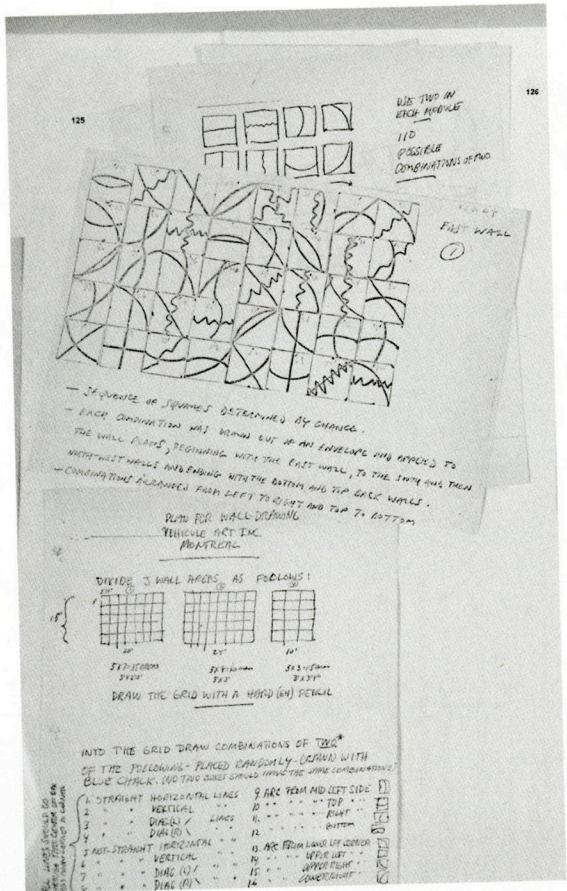 125
126
USE TWO IN
EACH MODULE
110
POSSIBLE
COMBINATIONS OF TWO
EAST WALL
1
- SEQUENCE OF SQUARES DETERMINED BY CHANCE.
- EACH COMBINATION WAS DRAWN OUT OF AN ENVELOPE AND APPLIED TO
THE WALL PLANS, BEGINNING WITH THE EAST WALL, TO THE SOUTH AND THEN
NORTH-WEST WALLS AND ENDING WITH THE BOTTOM AND TOP BACK WALLS.
- COMBINATIONS ARRANGED FROM LEFT TO RIGHT AND TOP TO BOTTOM
PLAN FOR WALL-DRAWING
VEHICULE ART INC.
MONTREAL
DIVIDE 3 WALL AREAS AS FOLLOWS:
15'
20'
10'
DRAW THE GRID WITH A HARD (6H) PENCIL
INTO THE GRID DRAW COMBINATIONS OF TWO*
OF THE FOLLOWING - PLACED RANDOMLY - DRAWN WITH
BLUE CHALK. (NO TWO BOXES SHOULD HAVE THE SAME COMBINATIONS)
1. STRAIGHT HORIZONTAL LINES
2 " VERTICAL "
3 " DIAG(L) / LINES
4 " DIAG(R) \ "
5 NOT-STRAIGHT HORIZONTAL "
6 " VERTICAL "
7 " DIAG (L) / "
8 " DIAG (R) \ "
9 ARC FROM MID LEFT SIDE
10 " " " TOP "
11. " " " RIGHT "
12 " " " BOTTOM
13. ARC FROM LOWER LEFT CORNER
14 " " UPPER LEFT "
15 " " UPPER RIGHT "
16 " " LOWER RIGHT "
ALL LINES SHOULD GO